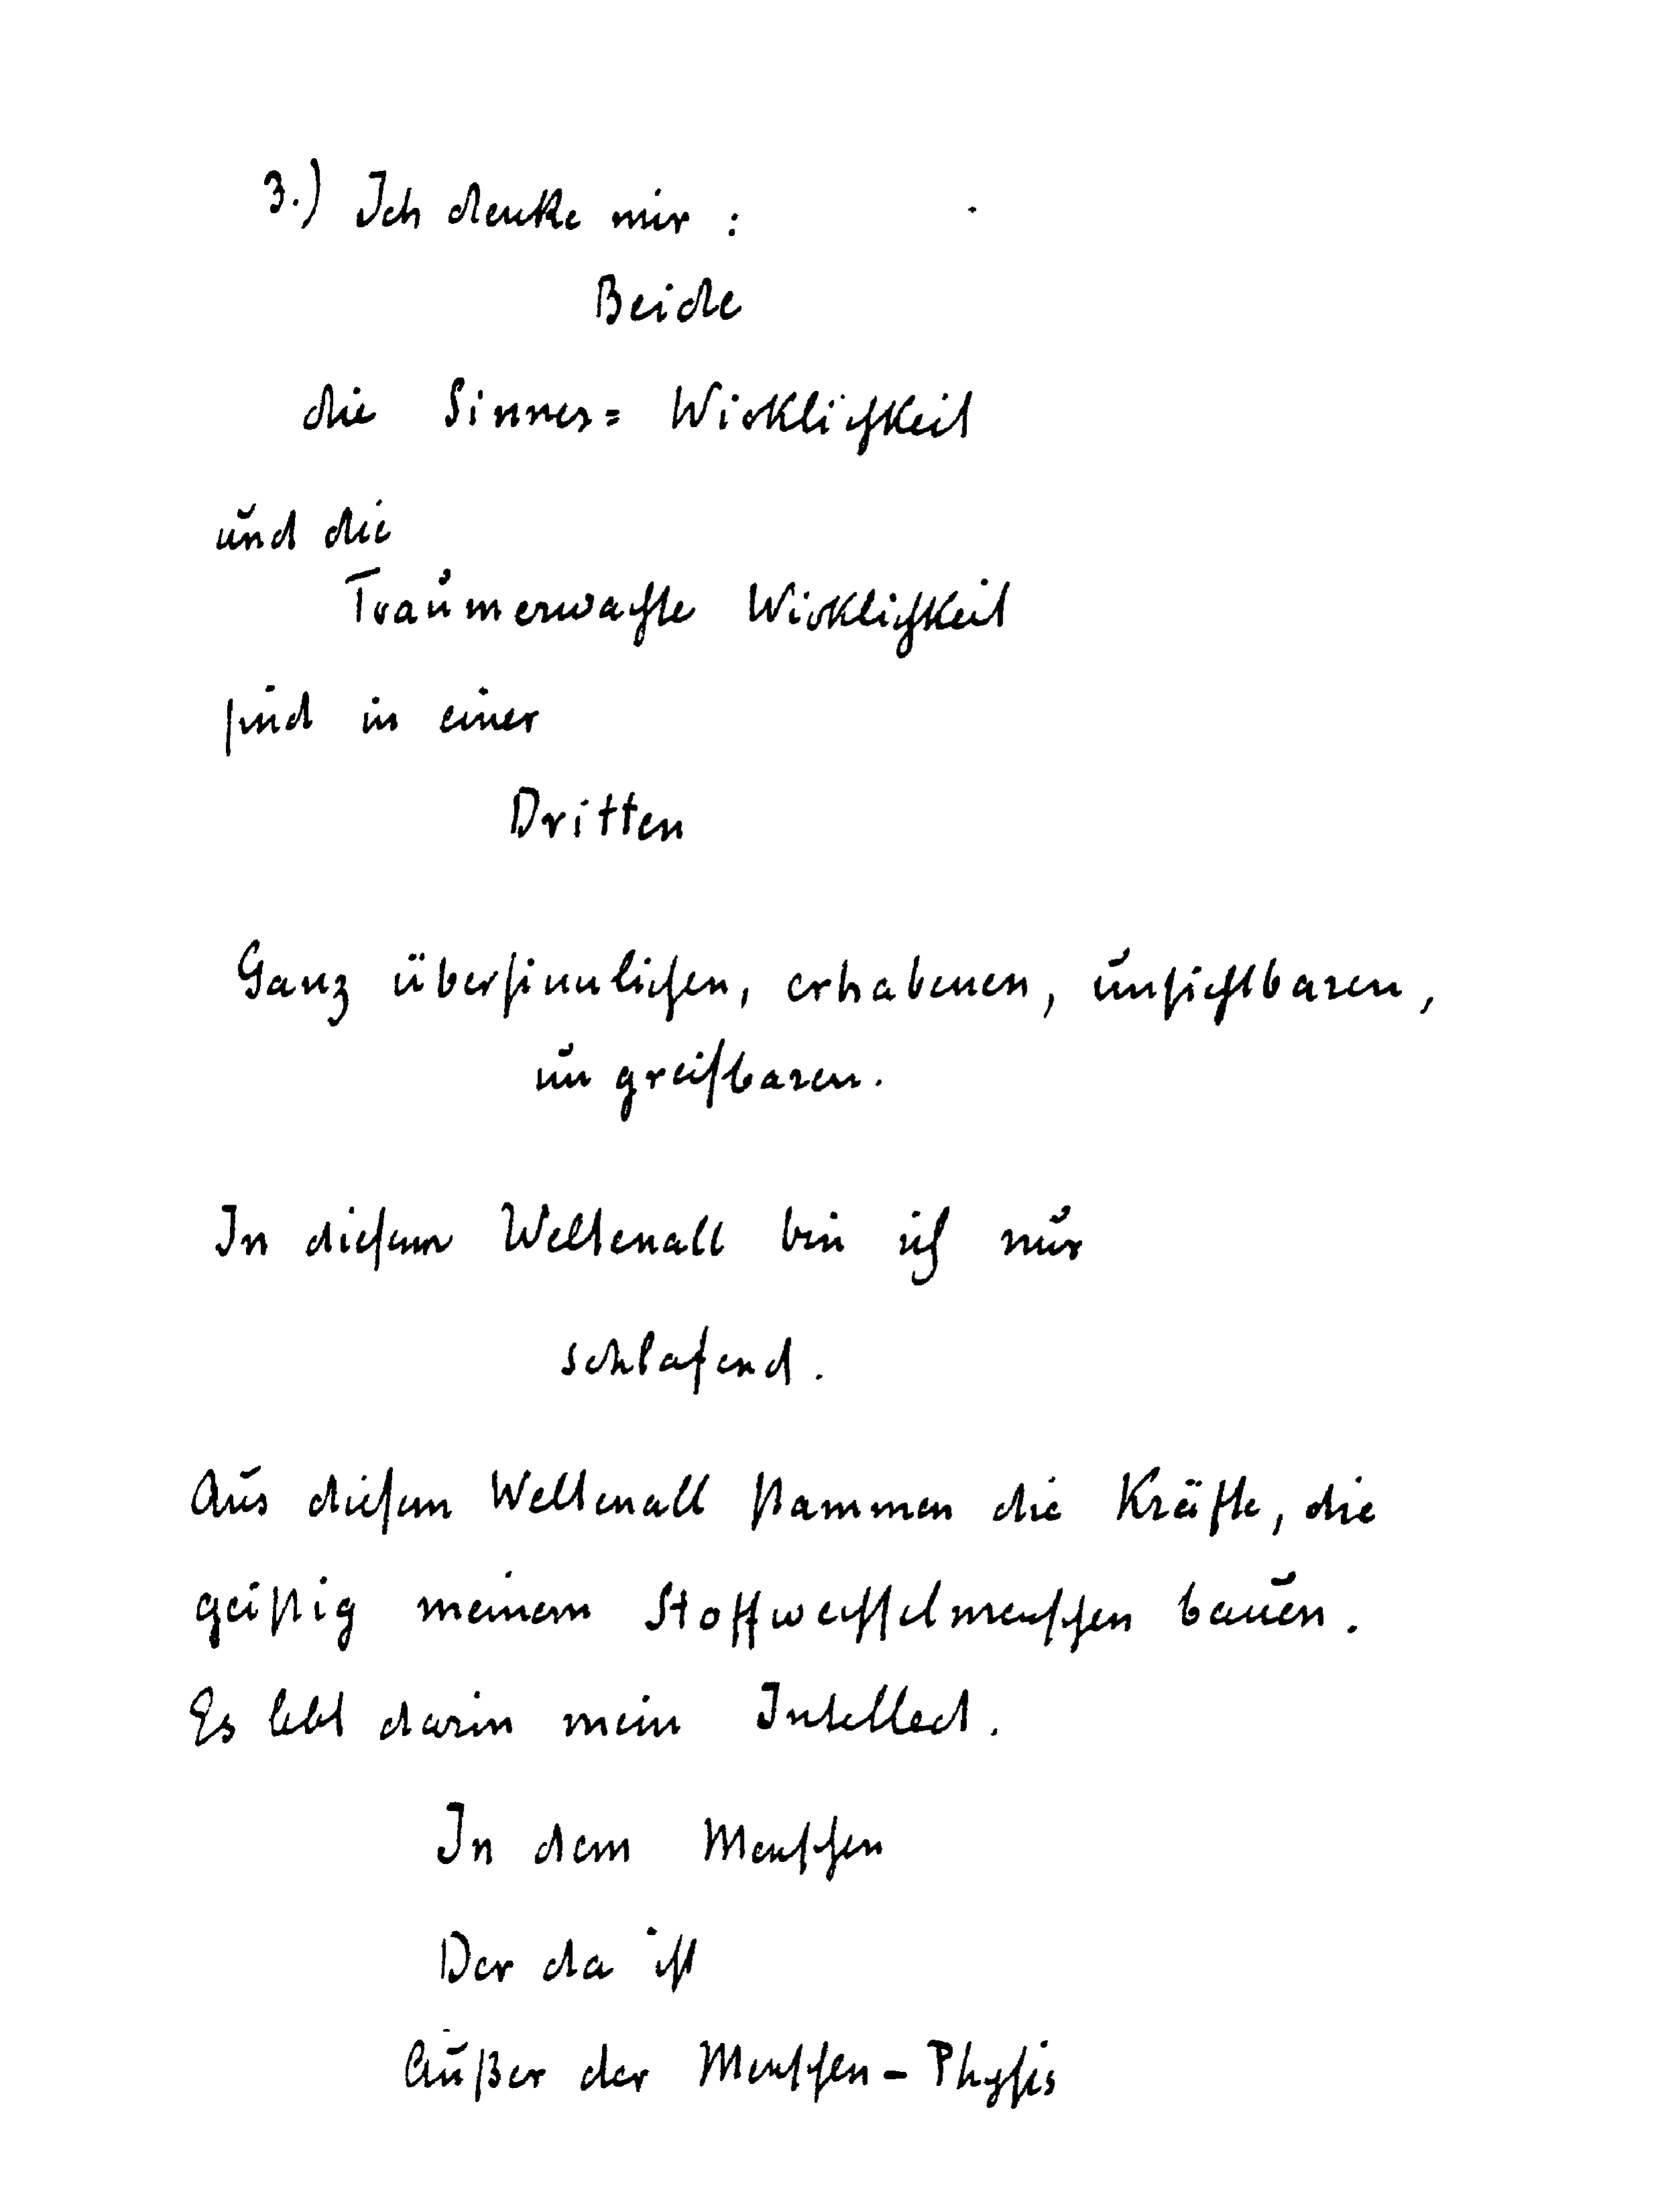 3.) Ich denke mir :
Beide
die Sinnes= Wirklichkeit
und die
Traumerwachte Wirklichkeit
sind in einer
Dritten
Ganz übersinnlichen, erhabenen, unsichtbaren,
un greifbaren.
In diesem Weltenall bin ich nur
schlafend.
Aus diesem Weltenall stammen die Kräfte, die
geistig meinem Stoffwechselmenschen bauen.
Es lebt darin mein Intellect.
In dem Menschen
Der da ist
Außer der Menschen - Physis